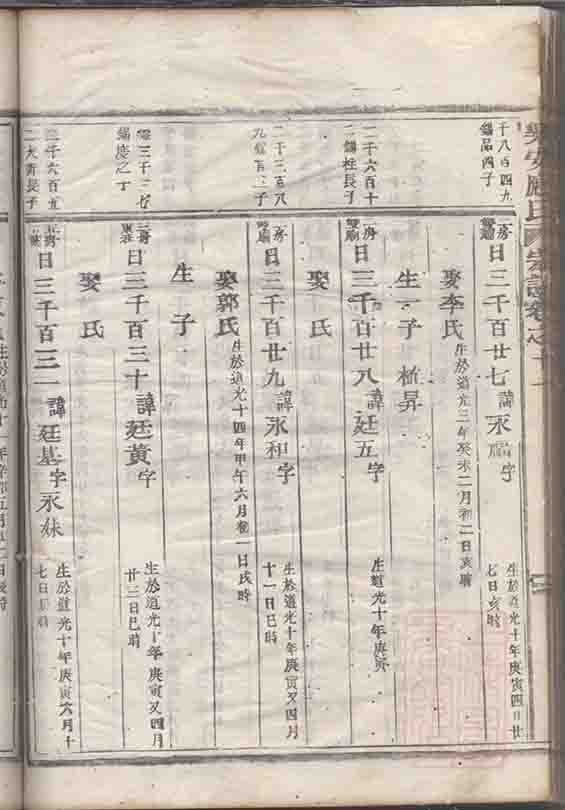 氏宗譜卷之十一
千八百四九
錫品四子
房
日三千百廿七諱永
字
生於道光十年庚寅四月廿
七日亥時
娶李氏
生於道光三年癸未二月初二日亥時
生一子
昇
二千六百十
二錫柱長子
二房雙廟
日三千百廿八諱廷五字
生道光十年庚寅
娶氏
二千三百八
九
子
房
日三千百廿九諱永和字
生於道光十年庚寅又四月
十一日巳時
娶郭氏
生於道光十四年甲午六月初一日戌時
生子
三千二七
錫慶之丁
二房東莊
日三千百三十諱廷黃字
生於道光十年庚寅又四月
廿三日巳時
娶氏
千六百九
二大有長子
日三千百三一諱廷基字永妹
生於道光十年庚寅六月十
七日
時